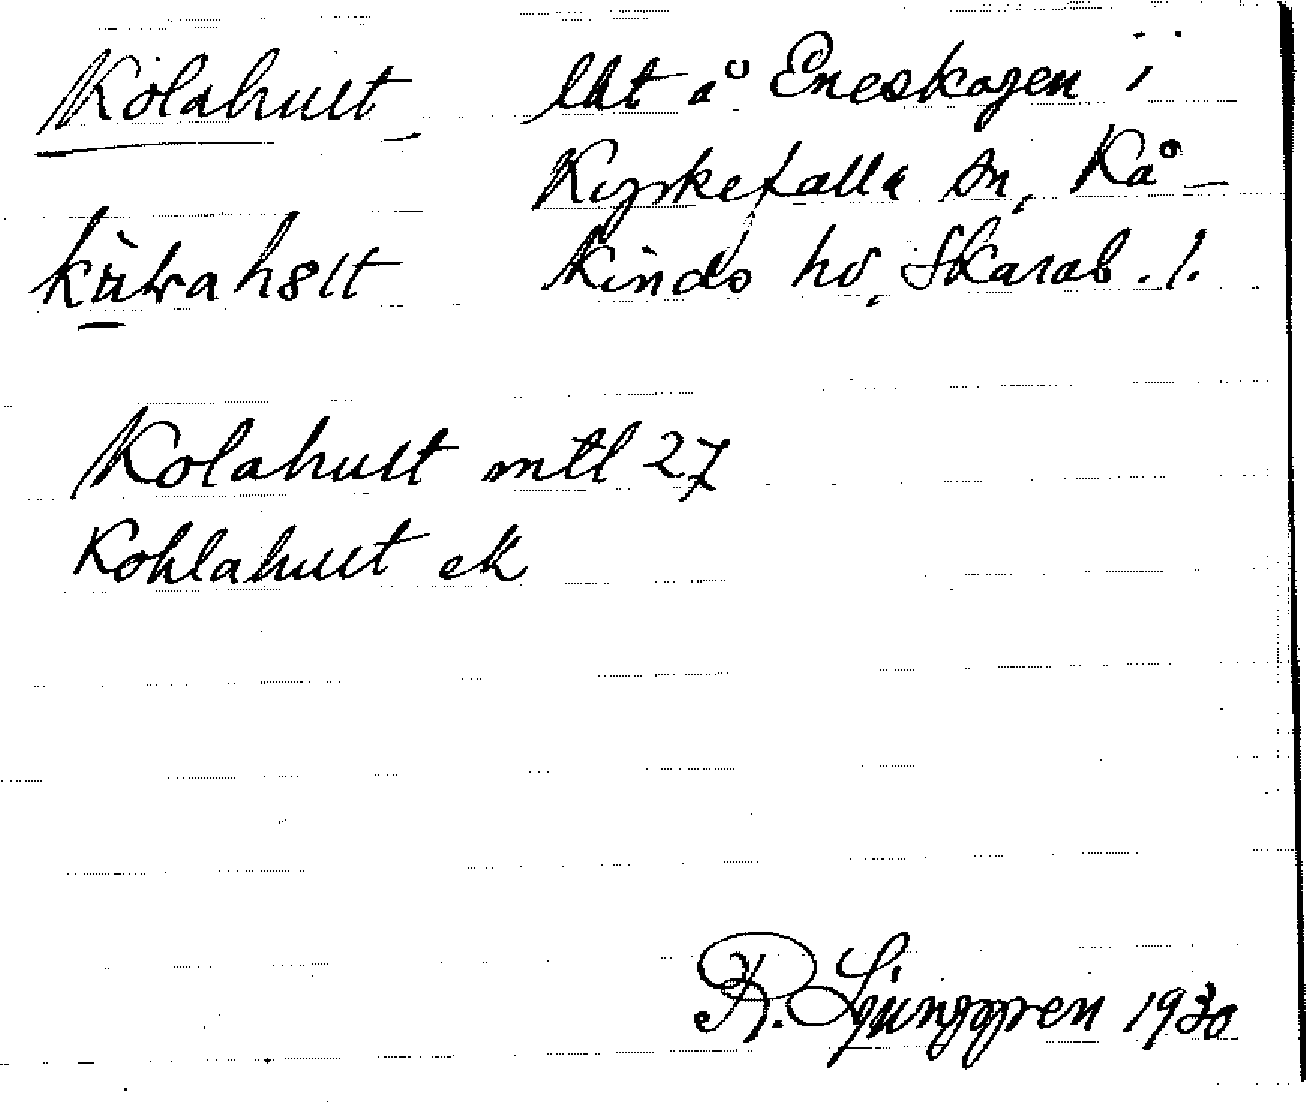 Kolahult lht å Eneskogen i
Kyrkefalla sn, Kå-
kinds hd, Skarab. l.
Kolahult mtl 27
Kohlahult ek
R. Ljunggren 1930